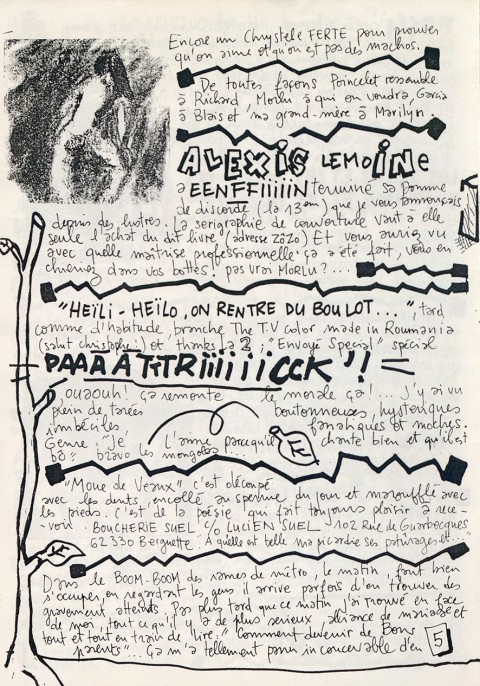 Encore un Chrystele FERTE pour prouver
qu'on aime et qu'on est pas des machos.
De toutes façons Poincelet ressemble
à Richard, Morlu à qui on voudra, Garcia
à Blais et ma grand-mère à Marilyn.
ALEXIS LEMOINE
a EENFFIIIIIN terminé sa pomme
de discorde (la 13em) que je vous annonçais
depuis des lustres. La serigraphie de couverture vaut à elle
seule l'achat du dit livre (adresse ZAZO) Et vous auriez vu
avec quelle maitrise professionnelle ça a été fait, vous en
chieriez dans vos bottes! pas vrai MORLU?...
"HEÏLI-HEÏLO, ON RENTRE DU BOULOT...", tard
comme d'habitude, branche The T.V color made in Roumania
(saint christophe!) et thanks la 2, "Envoyé Special" spécial
PAAAATTTRIIIIIICCK'!!
ouaouh! ça remonte le morale ça!... J'y ai vu
plein de tarées boutonneuses, hysteriques
imbéciles fanatiques et moches.
Genre: "Je L'aime parcequ'il chante bien et qu'il est
bô!" bravo les mongoles!...
"Moue de Veaux" c'est découpé
avec les dents, encollé au sperme du jour et marouflé avec
les pieds. C'est de la poésie qui fait toujours plaisir à rece-
-voir BOUCHERIE SUEL c/o LUCIEN SUEL 102 Rue de Guarbecques
62330 Berguette. A quelle est belle ma picardie ses paturages et..."
Dans le BOOM-BOOM des rames de métro, le matin, faut bien
s'occuper, en regardant les gens il arrive parfois d'en trouver des
gravement atteints. Pas plus tard que ce matin j'ai trouvé en face
de moi, tout ce qu'il y a de plus serieux, alliance de mariage et
tout et tout en train de lire: "Comment devenir de Bons
parents"... Ça m'a tellement paru inconcevable d'en
5